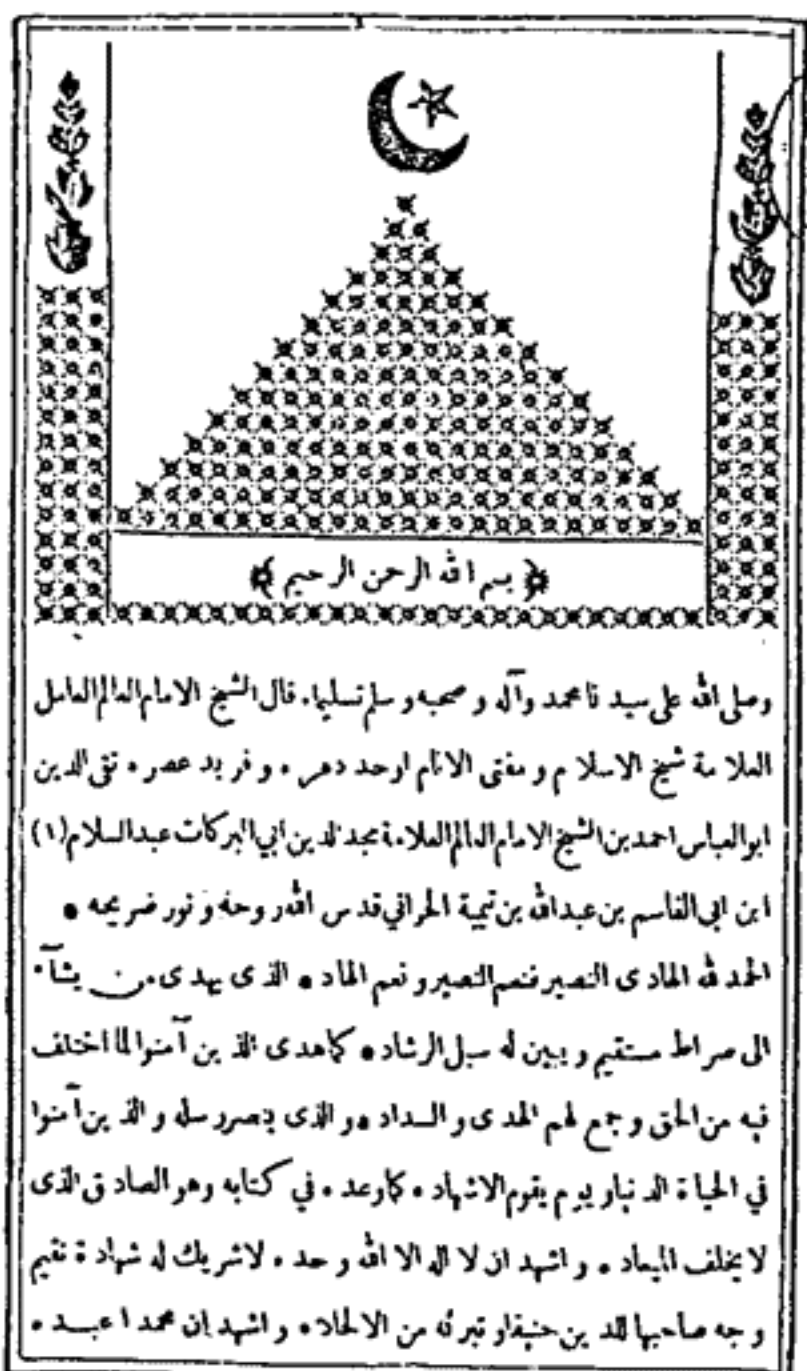 ﴿ بسم الله الرحمن الرحيم ﴾
وصلى الله على سيدنا محمد وآله وصحبه وسلم تسليما. قال الشيخ الامام العالم العامل
العلامة شيخ الاسلام ومفتى الانام اوحد دهره وفريد عصره تقى الدين
ابوالعباس احمد بن الشيخ الامام العالم العلامة مجد الدين ابي البركات عبدالسلام (١)
ابن ابى القاسم بن عبدالله بن تيمية الحراني قدس الله روحه ونور ضريحه ●
الحمد لله الهادى النصير فنعم النصير ونعم الهاد ● الذى يهدى من يشآء
الى صراط مستقيم ويبين له سبل الرشاد ● كما هدى الذين آمنوا لما اختلف
فيه من الحق وجمع لهم الهدى والسداد ● والذى ينصر رسله والذين آمنوا
في الحياة الدنيا ويوم يقوم الاشهاد ● كما وعده في كتابه وهو الصادق الذى
لا يخلف الميعاد ● واشهد ان لا اله الا الله وحده لاشريك له شهادة تقيم
وجه صاحبها للدين حنيفا وتبرئه من الالحاد ● واشهد ان محمدا عبده